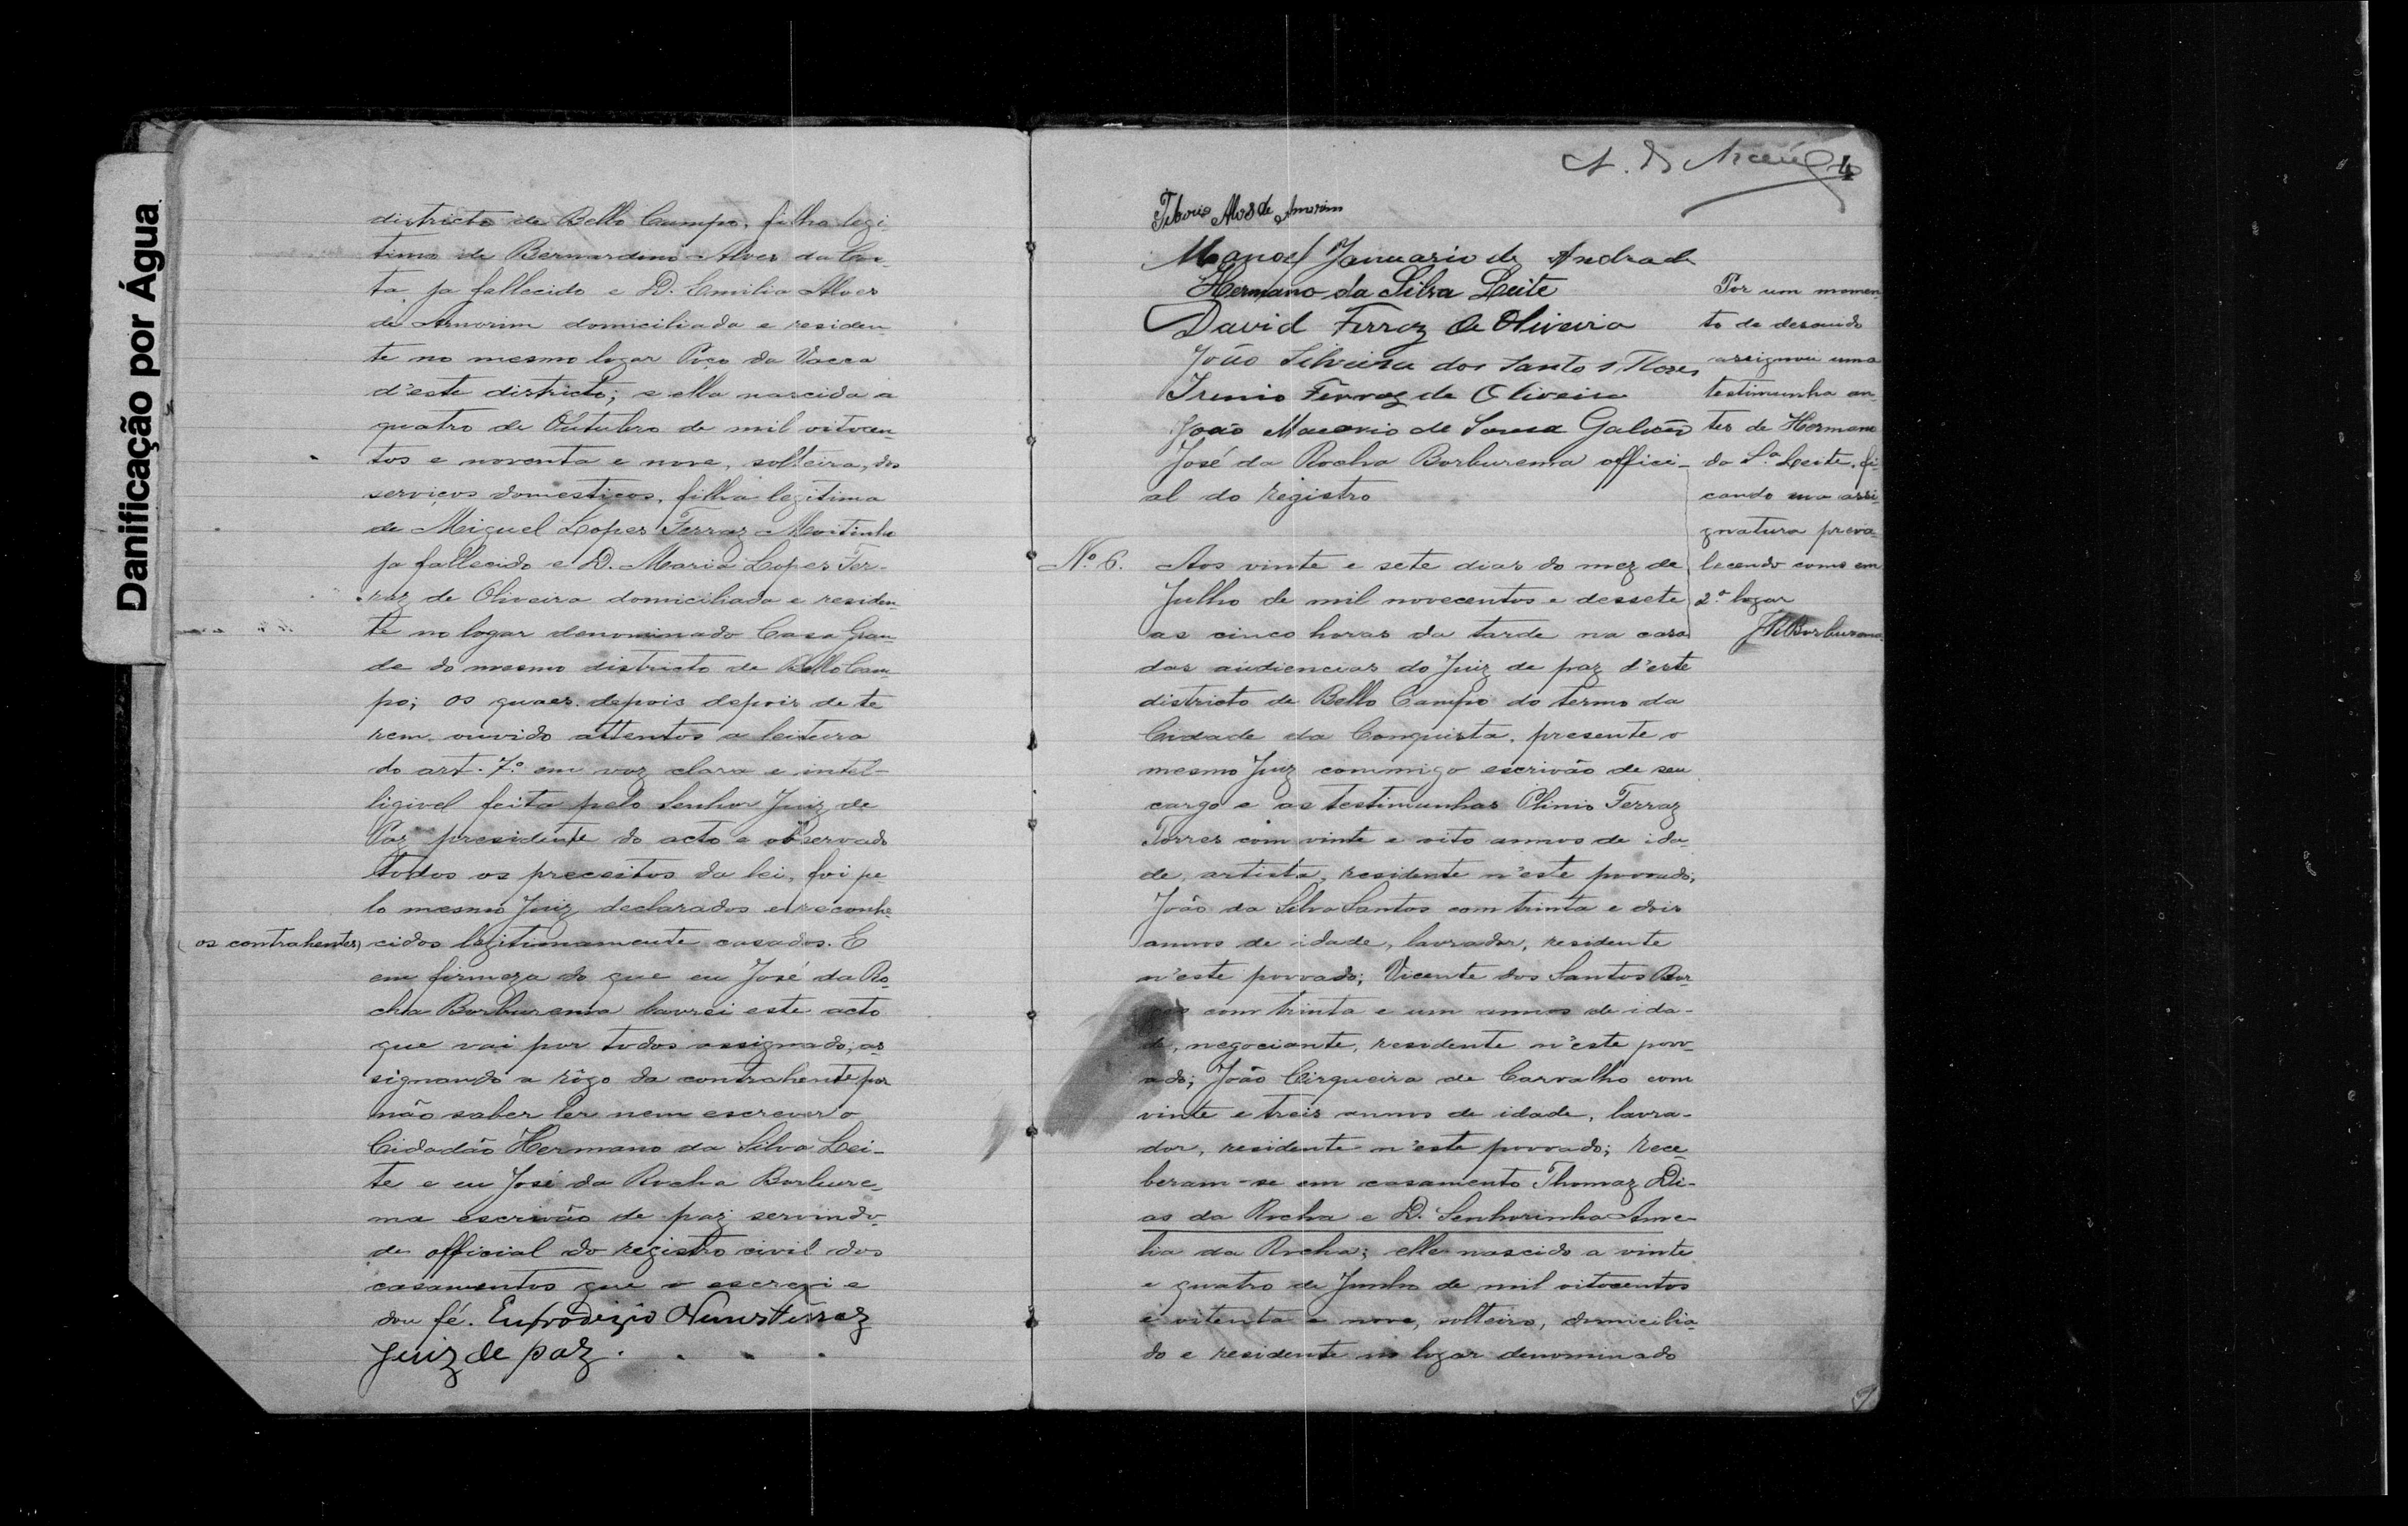 Danificação por Água
districto de Bello Campo, filho legi-
timo de Bernardino Alves da Cos-
ta ja fallecido e D. Emilia Alves
de Amorim domiciliada e residen
te no mesmo logar Poço da Vacca
d'este districto; e ella nascida a
quatro de Outubro de mil oitocen-
tos e noventa e nove, solteira, dos
serviços domesticos, filha legitima
de Miguel Lopes Ferraz Moitinho
ja fallecido e D. Maria Lopes Fer-
raz de Oliveira domiciliada e residen-
te no logar denominado Casa Gran-
de do mesmo districto de Bello Cam-
po; os quaes depois depois de te
rem ouvido attentos a leitura
do art. 7º em voz clara e intel-
ligivel feita pelo Senhor Juiz de
Paz presidente do acto e observado
todos os preceitos da lei, foi pe-
lo mesmo Juiz declarados e reconhe-
(os contrahentes) cidos legitimamente casados. E
em firmeza do que eu José da Ro-
cha Borburema lavrei este acto
que vai por todos assignado, as
signando a rôgo da contrahente por
não saber ler nem escrever o
Cidadão Hermano da Silva Lei-
te e eu José da Rocha Borbure-
ma escrivão de paz servindo
de official do registro civil dos
casamentos que o escrevi e
dou fé. Eufrodizio Nunes Ferraz
Juiz de paz.
4
Tiborio Alves de Amorim
Manoel Januario de Andrade
Hermano da Silva Leite
David Ferraz de Oliveira
João Silveira dos Santos Flores
Irenio Ferraz de Oliveira
João Macario de Sousa Galvão
José da Rocha Borburema offici-
al do registro
Por um momen
to de descuido
assignou uma
testimunha an-
tes de Hermano
da S.ª Leite, fi-
cando sua assi-
gnatura preva-
lecendo como em
2º logar
J. R. Borburema
Nº 6. Aos vinte e sete dias do mez de
Julho de mil novecentos e dessete
as cinco horas da tarde na casa
das audiencias do Juiz de paz d'este
districto de Bello Campo do termo da
Cidade da Conquista, presente o
mesmo Juiz commigo escrivão de seu
cargo e as testimunhas Olinio Ferraz
Torres com vinte e oito annos de ida-
de, artista, residente n'este povoado;
João da Silva Santos com trinta e dois
annos de idade, lavrador, residente
n'este povoado; Vicente dos Santos Bor-
ges com trinta e um annos de ida-
de, negociante, residente n'este povo-
ado; João Cirqueira de Carvalho com
vinte e treis annos de idade, lavra-
dor, residente n'este povoado; rece-
beram-se em casamento Thomaz Di-
as da Rocha e D. Senhorinha Ame-
lia da Rocha; elle nascido a vinte
e quatro de Junho de mil oitocentos
e oitenta e nove, solteiro, domicilia-
do e residente no logar denominado